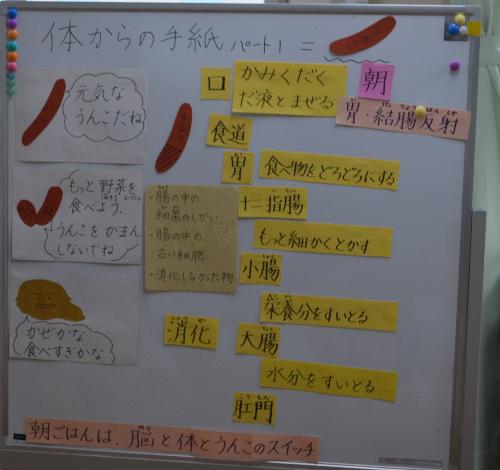 体からの手紙 パート1 =
元気な
うんこだね
もっと野菜を
食べよう。
うんこをがまん
しないでね
かぜかな
食べすぎかな
・腸の中の
細菌のしがい
・腸の中の
古い細胞
・消化しなかった物
消化
口
かみくだく
だ液とまぜる
食道
胃
食べ物をどろどろにする
十二指腸
もっと細かくとかす
小腸
栄養分をすいとる
大腸
水分をすいとる
肛門
こうもん
朝
胃・結腸反射
朝ごはんは、脳と体とうんこのスイッチ